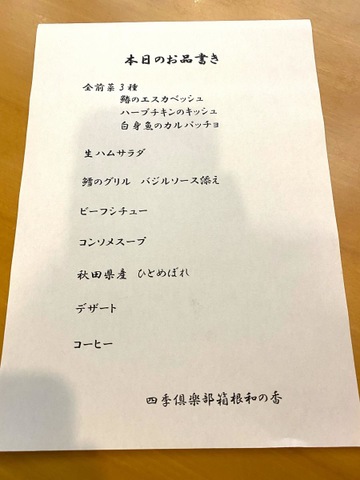 本日のお品書き
全前菜3種
鰆のエスカベッシュ
ハーブチキンのキッシュ
白身魚のカルパッチョ
生ハムサラダ
鱈のグリル バジルソース添え
ビーフシチュー
コンソメスープ
秋田県産 ひとめぼれ
デザート
コーヒー
四季倶楽部箱根和の香